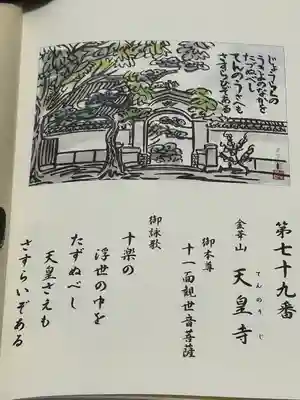 じゅうらくの
うきよのなかを
たづぬべし
てんのうさへも
さすらひぞある
第七十九番
金華山 天皇寺
てんのうじ
御本尊
十一面観世音菩薩
御詠歌
十楽の
浮世の中を
たずぬべし
天皇さえも
さすらいぞある